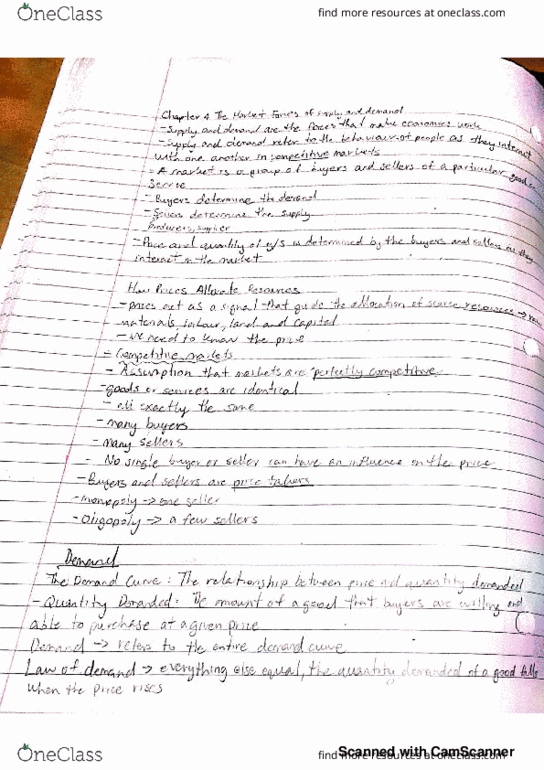 OneClass
find more resources at oneclass.com
Chapter 4 The Market Forces of supply and demand
- Supply and demand are the forces that make economies work
- Supply and demand refer to the behaviour of people as they interact
with one another in competitive markets
- A market is a group of buyers and sellers of a particular good or
Service
- Buyers determine the demand
- Sellers determine the supply
Producers, supplier
- Price and quantity of g/s is determined by the buyers and sellers as they
interact in the market
How Prices Allocate Resources
- prices act as a signal that guide the allocation of scarce resources →
materials, labour, land and capital
- we need to know the price
- Competitive markets
- Assumption that markets are perfectly competitive
- goods or services are identical
- all exactly the same
- many buyers
- many sellers
- No single buyer or seller can have an influence on the price
- Buyers and sellers are price takers
- monopoly → one seller
- Oligopoly → a few sellers
Demand
The Demand Curve : The relationship between price and quantity demanded
- Quantity Demanded : The amount of a good that buyers are willing and
able to purchase at a given price
Demand → refers to the entire demand curve
Law of demand → everything else equal, the quantity demanded of a good falls
when the price rises
OneClass
find more resources at oneclass.com
Scanned with CamScanner